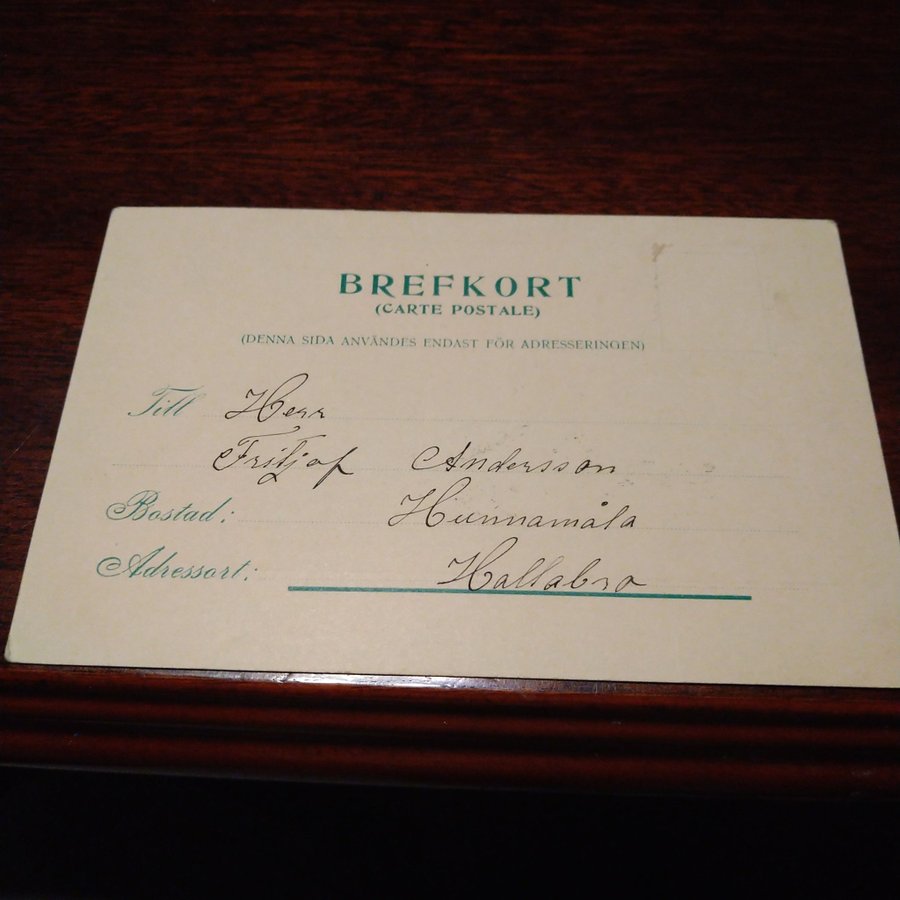 BREFKORT
(CARTE POSTALE)
(DENNA SIDA ANVÄNDES ENDAST FÖR ADRESSERINGEN)
Till Herr
Fritjof Andersson
Bostad: Hunnamåla
Adressort: Hallabro